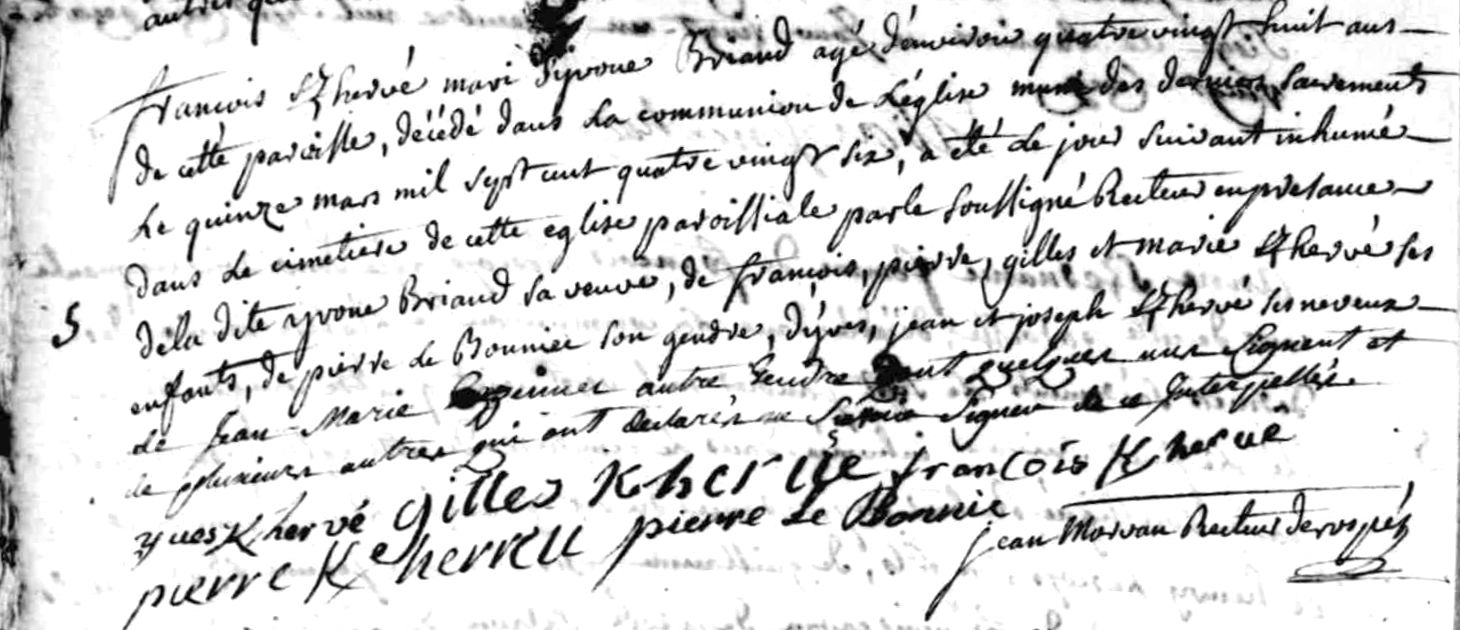 françois Khervé mari d'yvone Briand agé d'environ quatre vingt huit ans
de cette paroisse, décédé dans la communion de L'église muni des derniers sacrements
Le quinze mars mil sept cent quatre vingt six, a été le jour suivant inhumé
dans le cimetiere de cette eglise paroissiale par le soussigné Recteur en presance
de la dite yvone Briand sa veuve, de françois, pierre, gilles et marie Khervé ses
5
enfants, de pierre le Bonnier son gendre, d'yves, jean et joseph Khervé ses neveux
de Jean Marie autre Gendre dont quelques uns Signent et
de plusieurs autres qui ont declarés ne Savoir Signer de ce Interpellés.
yves Khervé gilles Kherve francois Kherve
pierre Keherreu pierre Le Bonnie
jean Morvan Recteur de rospéz